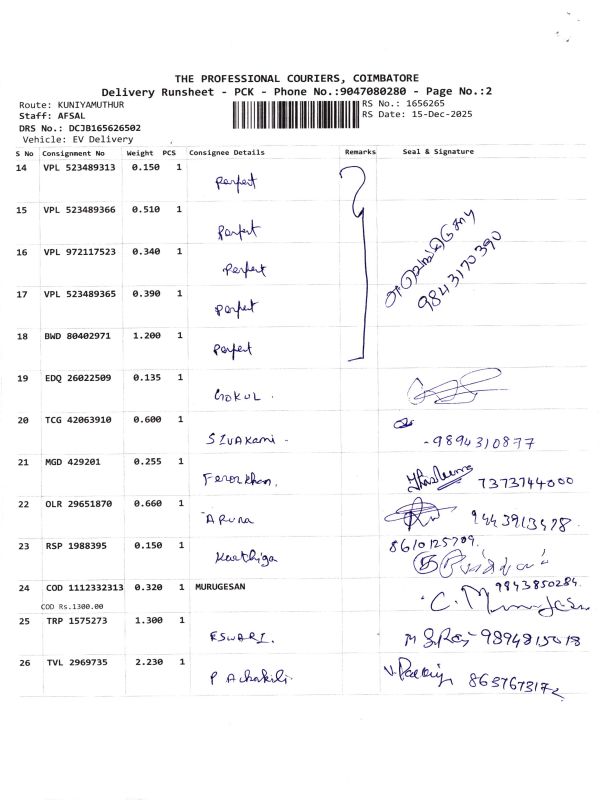 THE PROFESSIONAL COURIERS, COIMBATORE
Delivery Runsheet - PCK - Phone No.:9047080280 - Page No.:2
Route: KUNIYAMUTHUR RS No.: 1656265
Staff: AFSAL RS Date: 15-Dec-2025
DRS No.: DCJB165626502
Vehicle: EV Delivery
S No Consignment No Weight PCS Consignee Details Remarks Seal & Signature
14 VPL 523489313 0.150 1 Perfect
15 VPL 523489366 0.510 1 Perfect
16 VPL 972117523 0.340 1 Perfect
9843170390
17 VPL 523489365 0.390 1 Perfect
18 BWD 80402971 1.200 1 Perfect
19 EDQ 26022509 0.135 1 GOKUL.
20 TCG 42063910 0.600 1 SIVAKami - - 9894310877
21 MGD 429201 0.255 1 Feroz khan. 7373744000
22 OLR 29651870 0.660 1 ARUNA 9443913478.
23 RSP 1988395 0.150 1 Karthiga 8610125709.
24 COD 1112332313 0.320 1 MURUGESAN 9843850284.
COD Rs.1300.00
25 TRP 1575273 1.300 1 ESWARI. 9894815018
26 TVL 2969735 2.230 1 8637673172